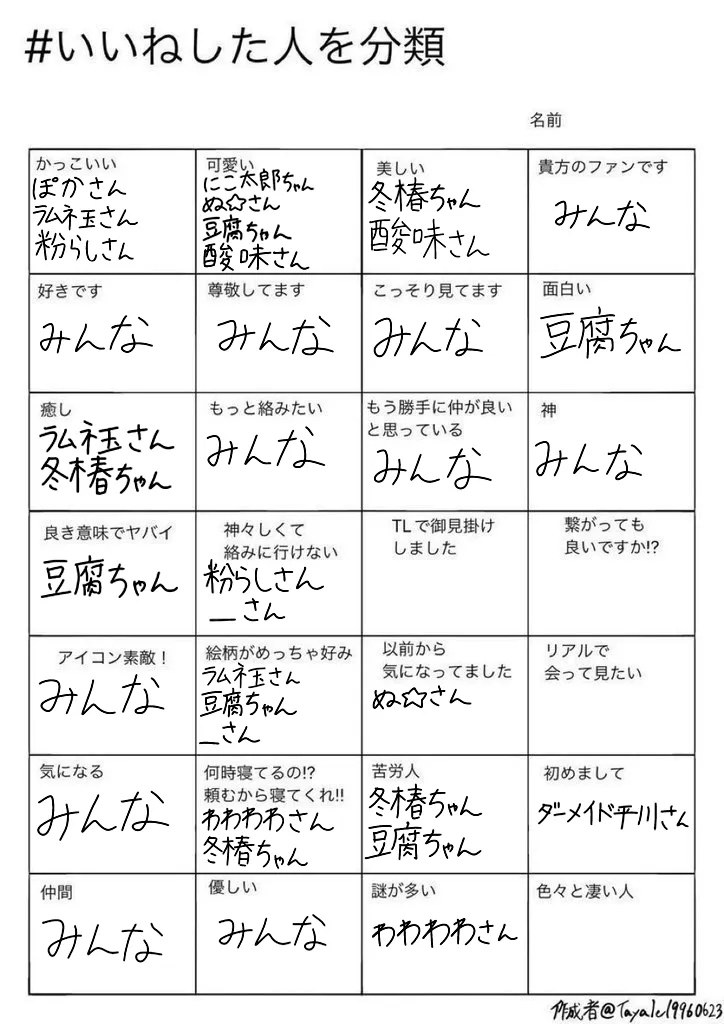 #いいねした人を分類
名前
かっこいい
ぽかさん
ラムネ玉さん
粉らしさん
可愛い
にこ太郎ちゃん
ぬ☆さん
豆腐ちゃん
酸味さん
美しい
冬椿ちゃん
酸味さん
貴方のファンです
みんな
好きです
みんな
尊敬してます
みんな
こっそり見てます
みんな
面白い
豆腐ちゃん
癒し
ラムネ玉さん
冬椿ちゃん
もっと絡みたい
みんな
もう勝手に仲が良い
と思っている
みんな
神
みんな
良き意味でヤバイ
豆腐ちゃん
神々しくて
絡みに行けない
粉らしさん
_さん
TLで御見掛け
しました
繋がっても
良いですか!?
アイコン素敵!
みんな
絵柄がめっちゃ好み
ラムネ玉さん
豆腐ちゃん
_さん
以前から
気になってました
ぬ☆さん
リアルで
会って見たい
気になる
みんな
何時寝てるの!?
頼むから寝てくれ!!
わわわわさん
冬椿ちゃん
苦労人
冬椿ちゃん
豆腐ちゃん
初めまして
ダーメイド平川さん
仲間
みんな
優しい
みんな
謎が多い
わわわわさん
色々と凄い人
作成者@Tayale19960623